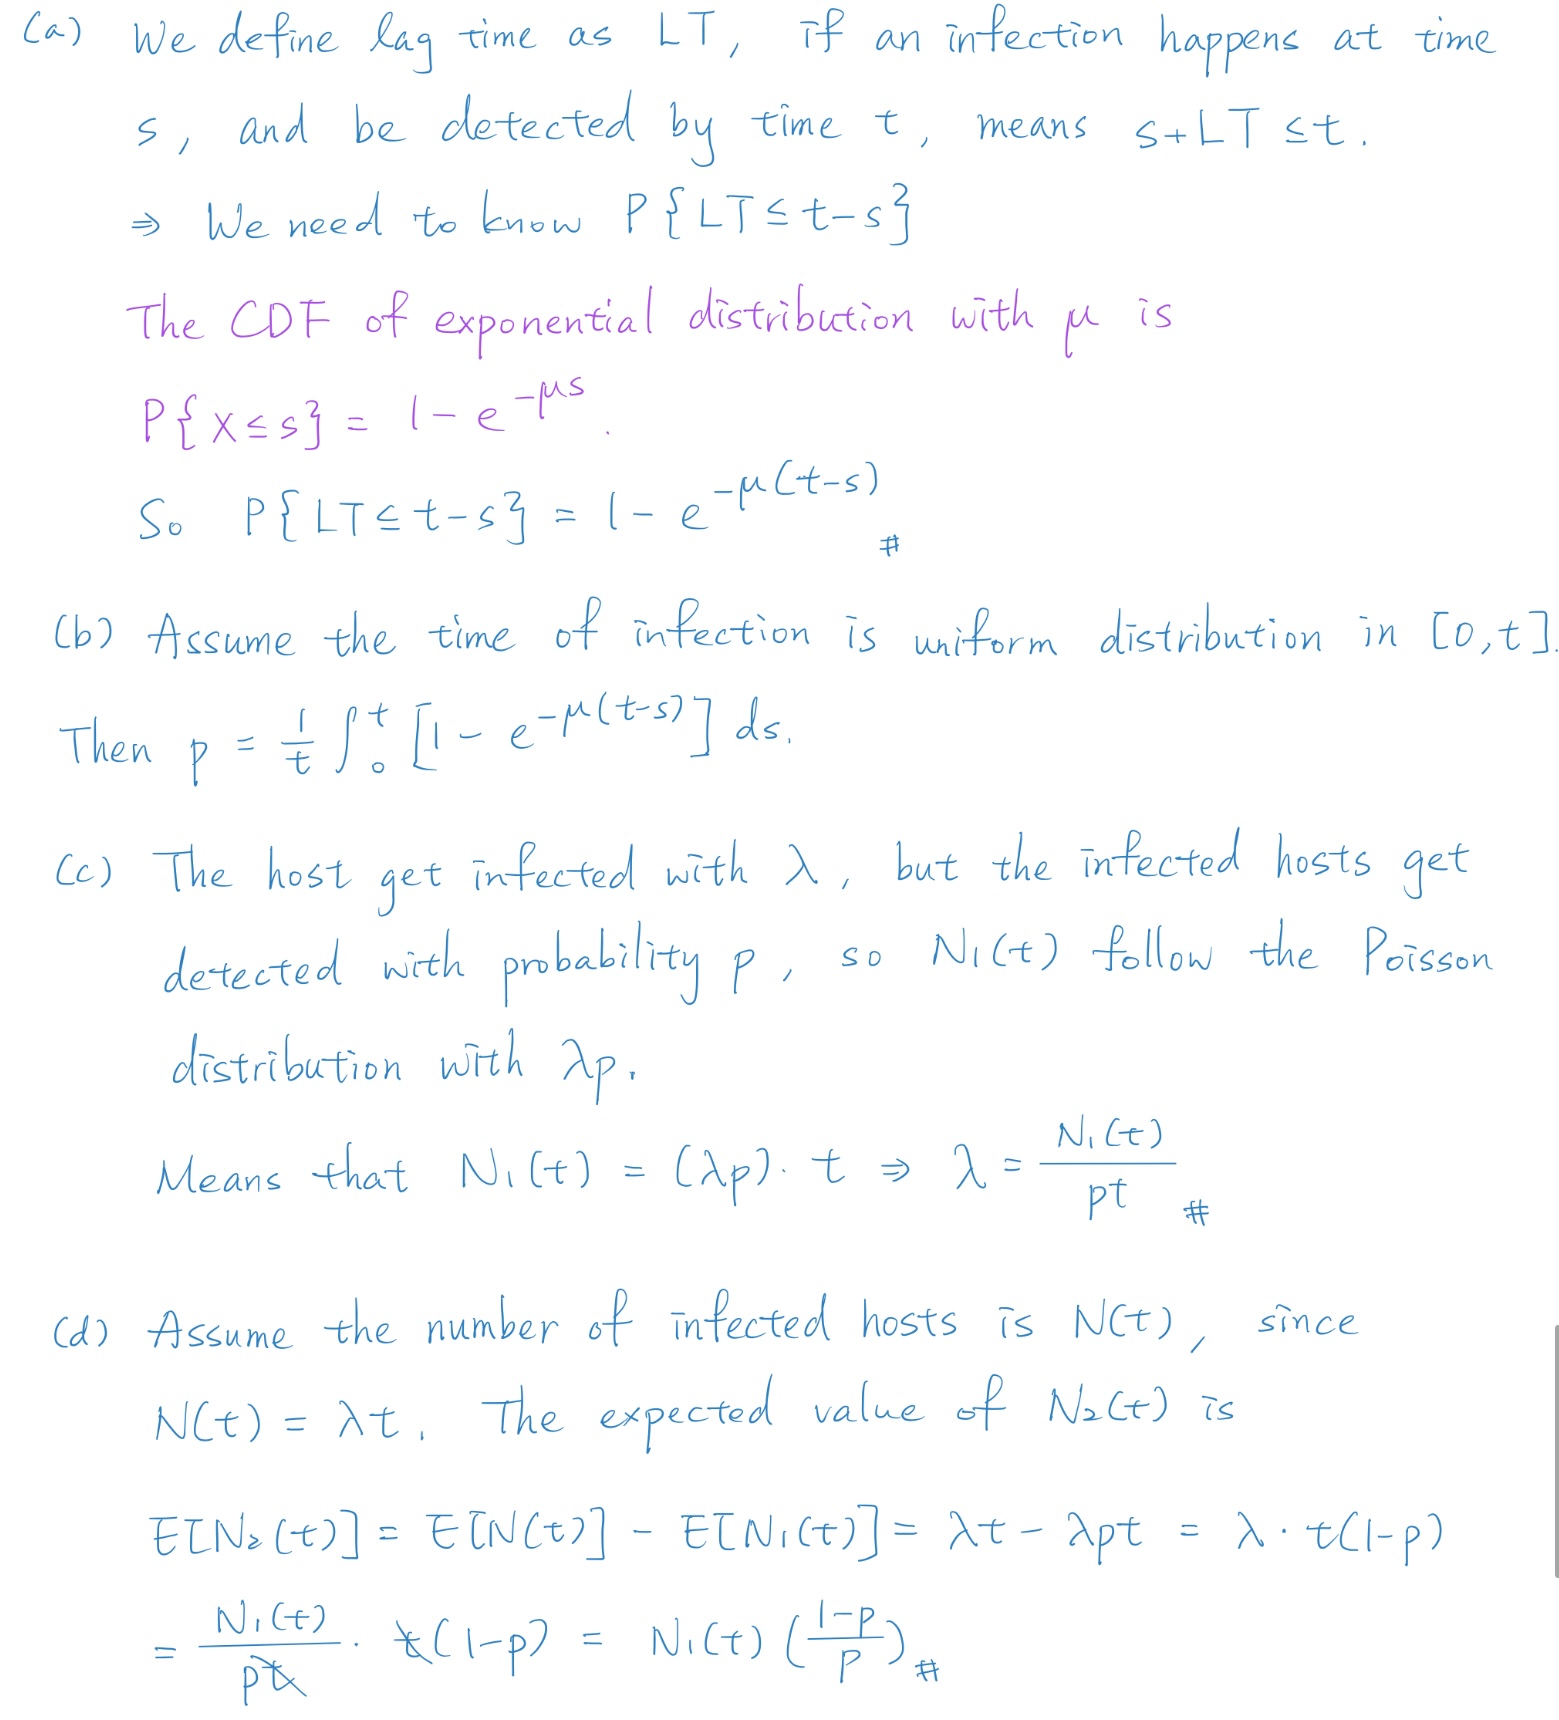 (a) We define lag time as LT, if an infection happens at time
s, and be detected by time t, means s+LT ≤ t.
⇒ We need to know P{LT ≤ t-s}
The CDF of exponential distribution with μ is
P{X ≤ s} = 1 - e^{-μs}.
So P{LT ≤ t-s} = 1 - e^{-μ(t-s)} #
(b) Assume the time of infection is uniform distribution in [0,t].
Then p = \frac{1}{t} ∫_0^t [1 - e^{-μ(t-s)}] ds.
(c) The host get infected with λ, but the infected hosts get
detected with probability p, so N₁(t) follow the Poisson
distribution with λp.
Means that N₁(t) = (λp)·t ⇒ λ = \frac{N₁(t)}{pt} #
(d) Assume the number of infected hosts is N(t), since
N(t) = λt. The expected value of N₂(t) is
E[N₂(t)] = E[N(t)] - E[N₁(t)] = λt - λpt = λ·t(1-p)
= \frac{N₁(t)}{pt} · t(1-p) = N₁(t) (\frac{1-p}{p}) #